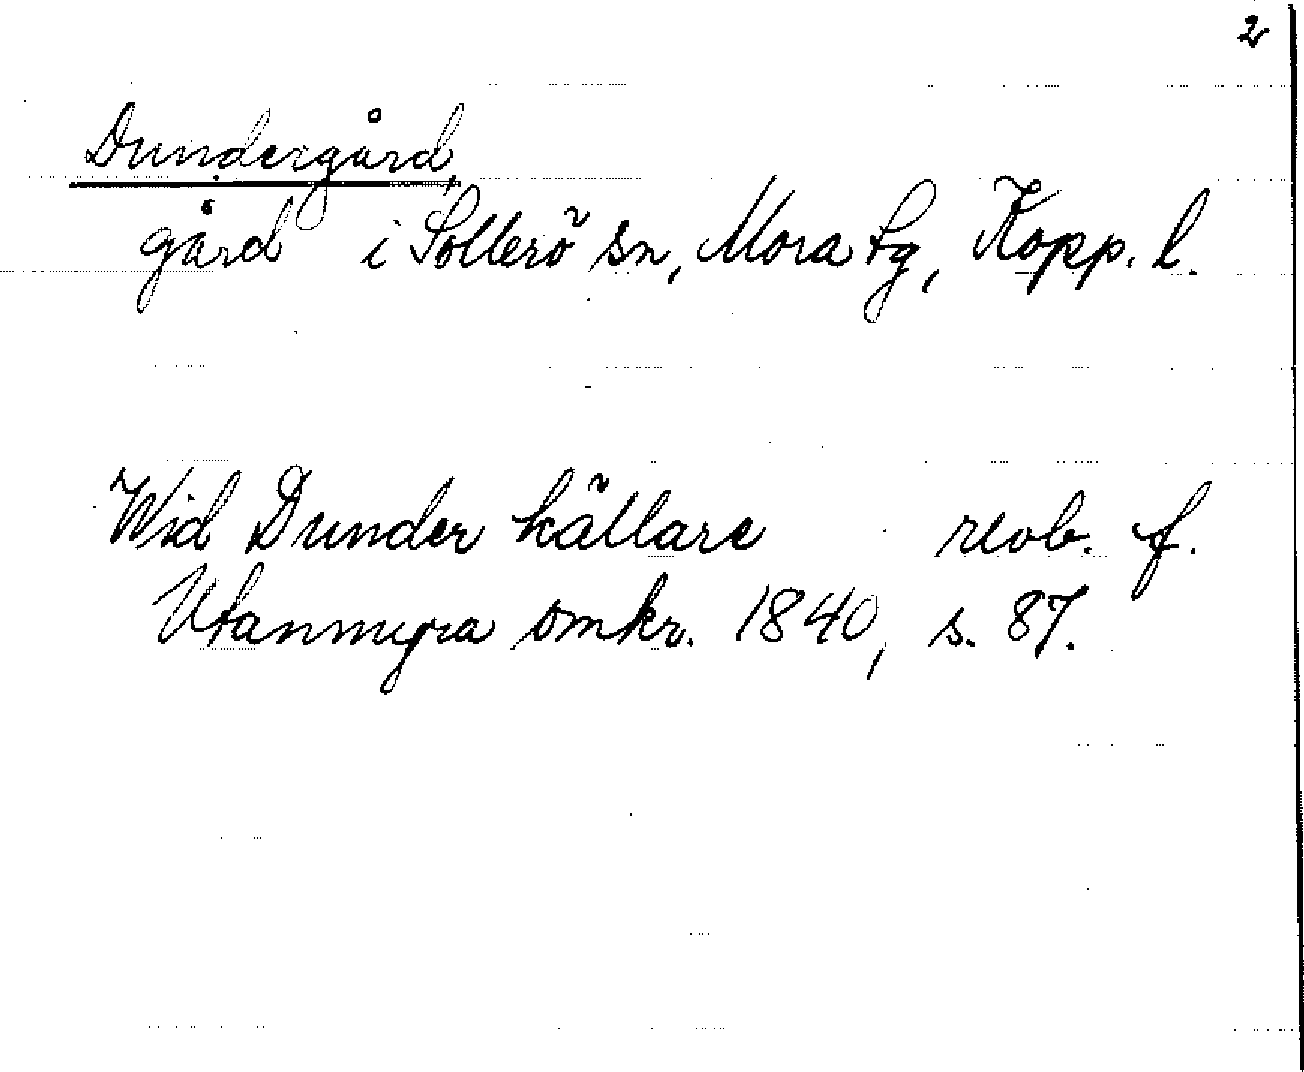 2
Dundergård,
gård i Sollerö sn, Mora tg, Kopp. l.
Wid Dunder källare reob. f.
Utanmyra omkr. 1840, s. 87.